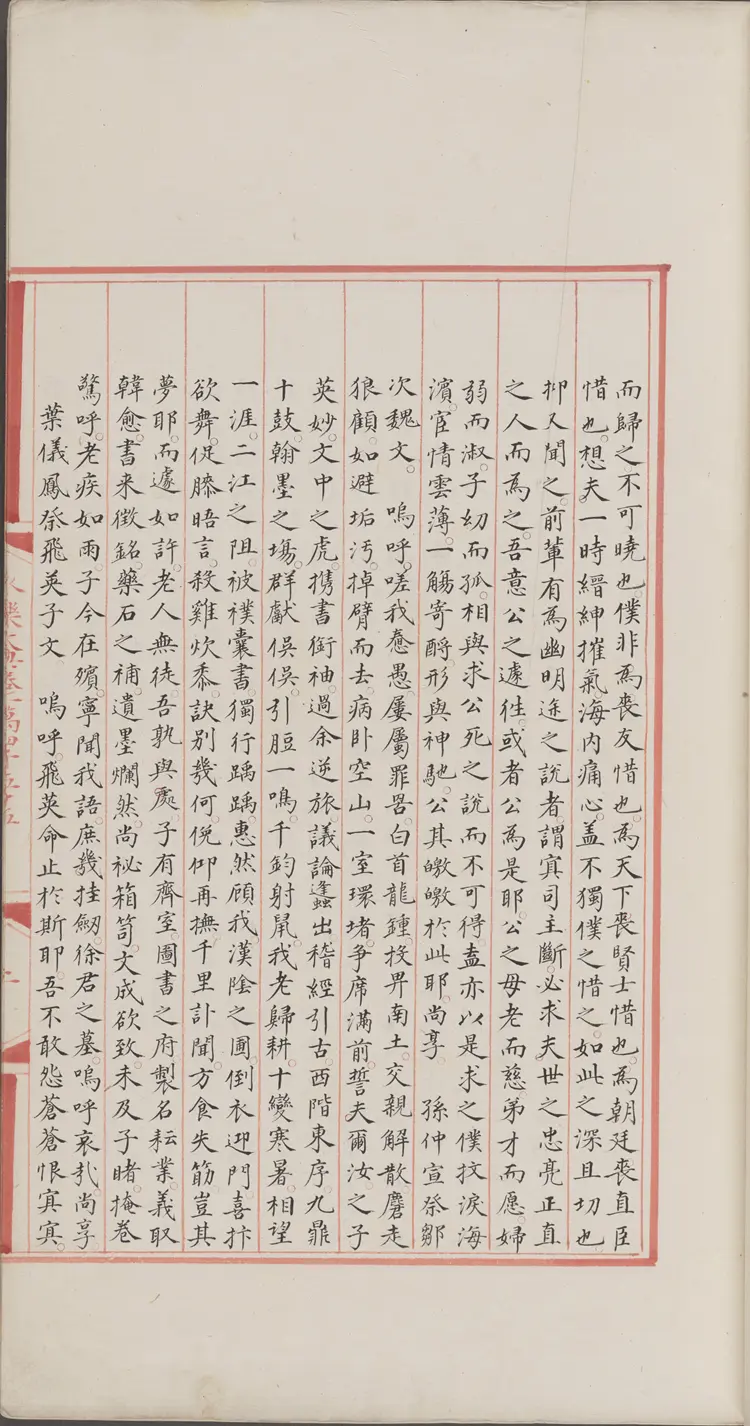 而歸之不可曉也僕非為喪友惜也為天下喪賢士惜也為朝廷喪直臣
惜也想夫一時縉紳摧氣海內痛心蓋不獨僕之惜之如此之深且切也
抑又聞之前輩有為幽明途之說者謂冥司主斷必求夫世之忠亮正直
之人而為之吾意公之遽徃或者公為是耶公之母老而慈弟才而愿婦
弱而淑子幼而孤相與求公死之說而不可得盍亦以是求之僕抆淚海
濱宦情雲薄一觴寄酹形與神馳公其皦皦於此耶尚享　孫仲宣祭鄒
次魏文　嗚呼嗟我憃愚屢屬罪罟白首龍鍾投畀南土交親解散麏走
狼顧如避垢汚掉臂而去病卧空山一室環堵争席滿前誓夫爾汝之子
英妙文中之虎攜書銜袖過余逆旅議論蠭出稽經引古西階東序九鼎
十鼓翰墨之塲群獻俁俁引脰一鳴千鈞射鼠我老歸耕十變寒暑相望
一涯二江之阻被襆囊書獨行踽踽惠然顧我漢陰之圃倒衣迎門喜抃
欲舞促膝晤言殺雞炊黍訣别幾何俛仰再撫千里訃聞方食失筯豈其
夢耶而遽如許老人無徒吾孰與處子有齊室圖書之府製名耘業義取
韓愈書来徵銘藥石之補遺墨爛然尚祕箱笥文成欲致未及子睹掩卷
驚呼老疾如雨子今在殯寧聞我語庶幾挂劒徐君之墓嗚呼哀㢤尚享
葉儀鳳祭飛英子文　嗚呼飛英命止於斯耶吾不敢怨蒼蒼恨冥冥